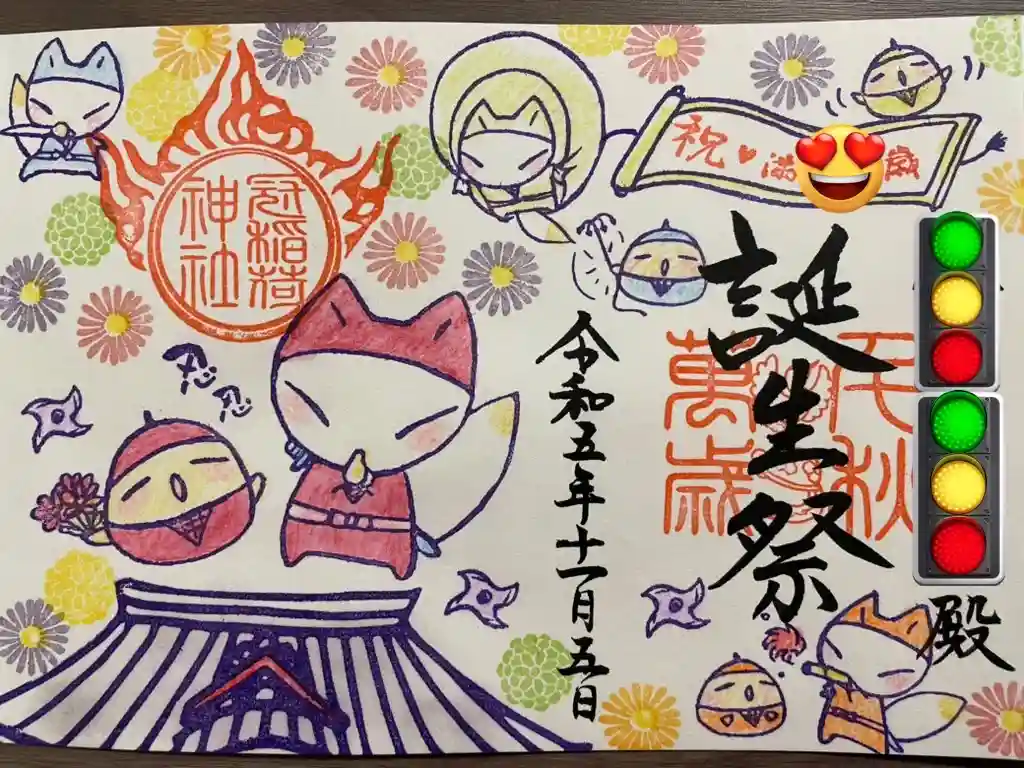 祝♥満
歳
殿
千秋
萬歳
誕生祭
令和五年十一月五日
冠稲荷
神社
忍
忍